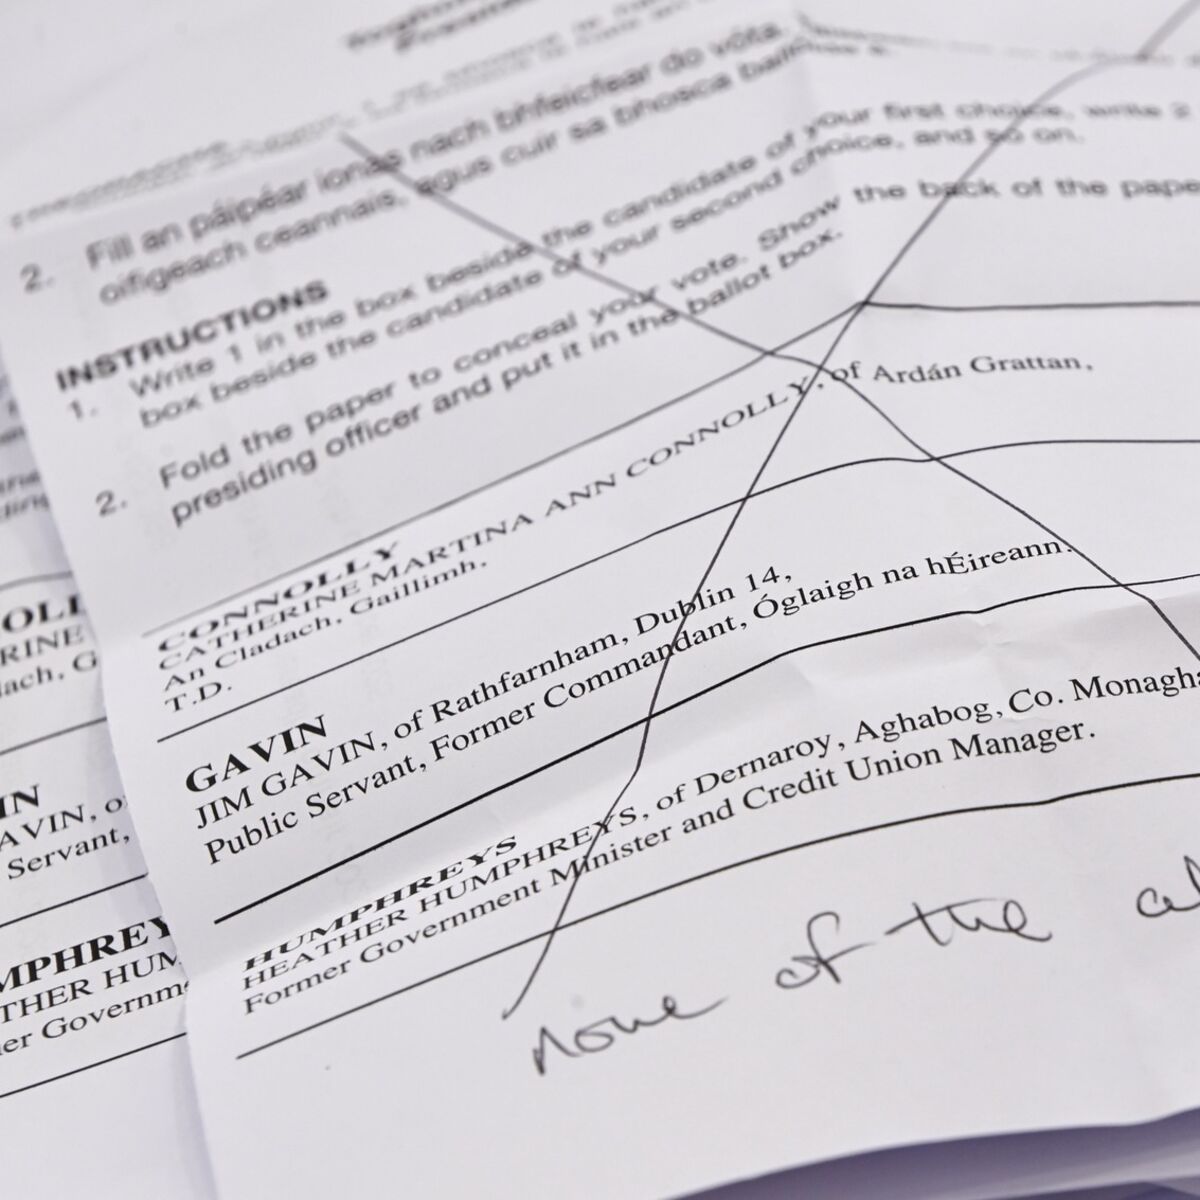 2. Fill an páipéar ionas nach bhfeicfear do vóta.
oifigeach ceannais, agus cuir sa bhosca ballóide é.
INSTRUCTIONS
1. Write 1 in the box beside the candidate of your first choice, write 2
box beside the candidate of your second choice, and so on.
2. Fold the paper to conceal your vote. Show the back of the pape
presiding officer and put it in the ballot box.
CONNOLLY
CATHERINE MARTINA ANN CONNOLLY, of Ardán Grattan,
An Cladach, Gaillimh.
T.D.
GAVIN
JIM GAVIN, of Rathfarnham, Dublin 14,
Public Servant, Former Commandant, Óglaigh na hÉireann.
HUMPHREYS
HEATHER HUMPHREYS, of Dernaroy, Aghabog, Co. Monagha
Former Government Minister and Credit Union Manager.
none of the a
OLL
RINE
lach, G
IN
AVIN, o
Servant,
MPHREY
THER HUM
er Governme